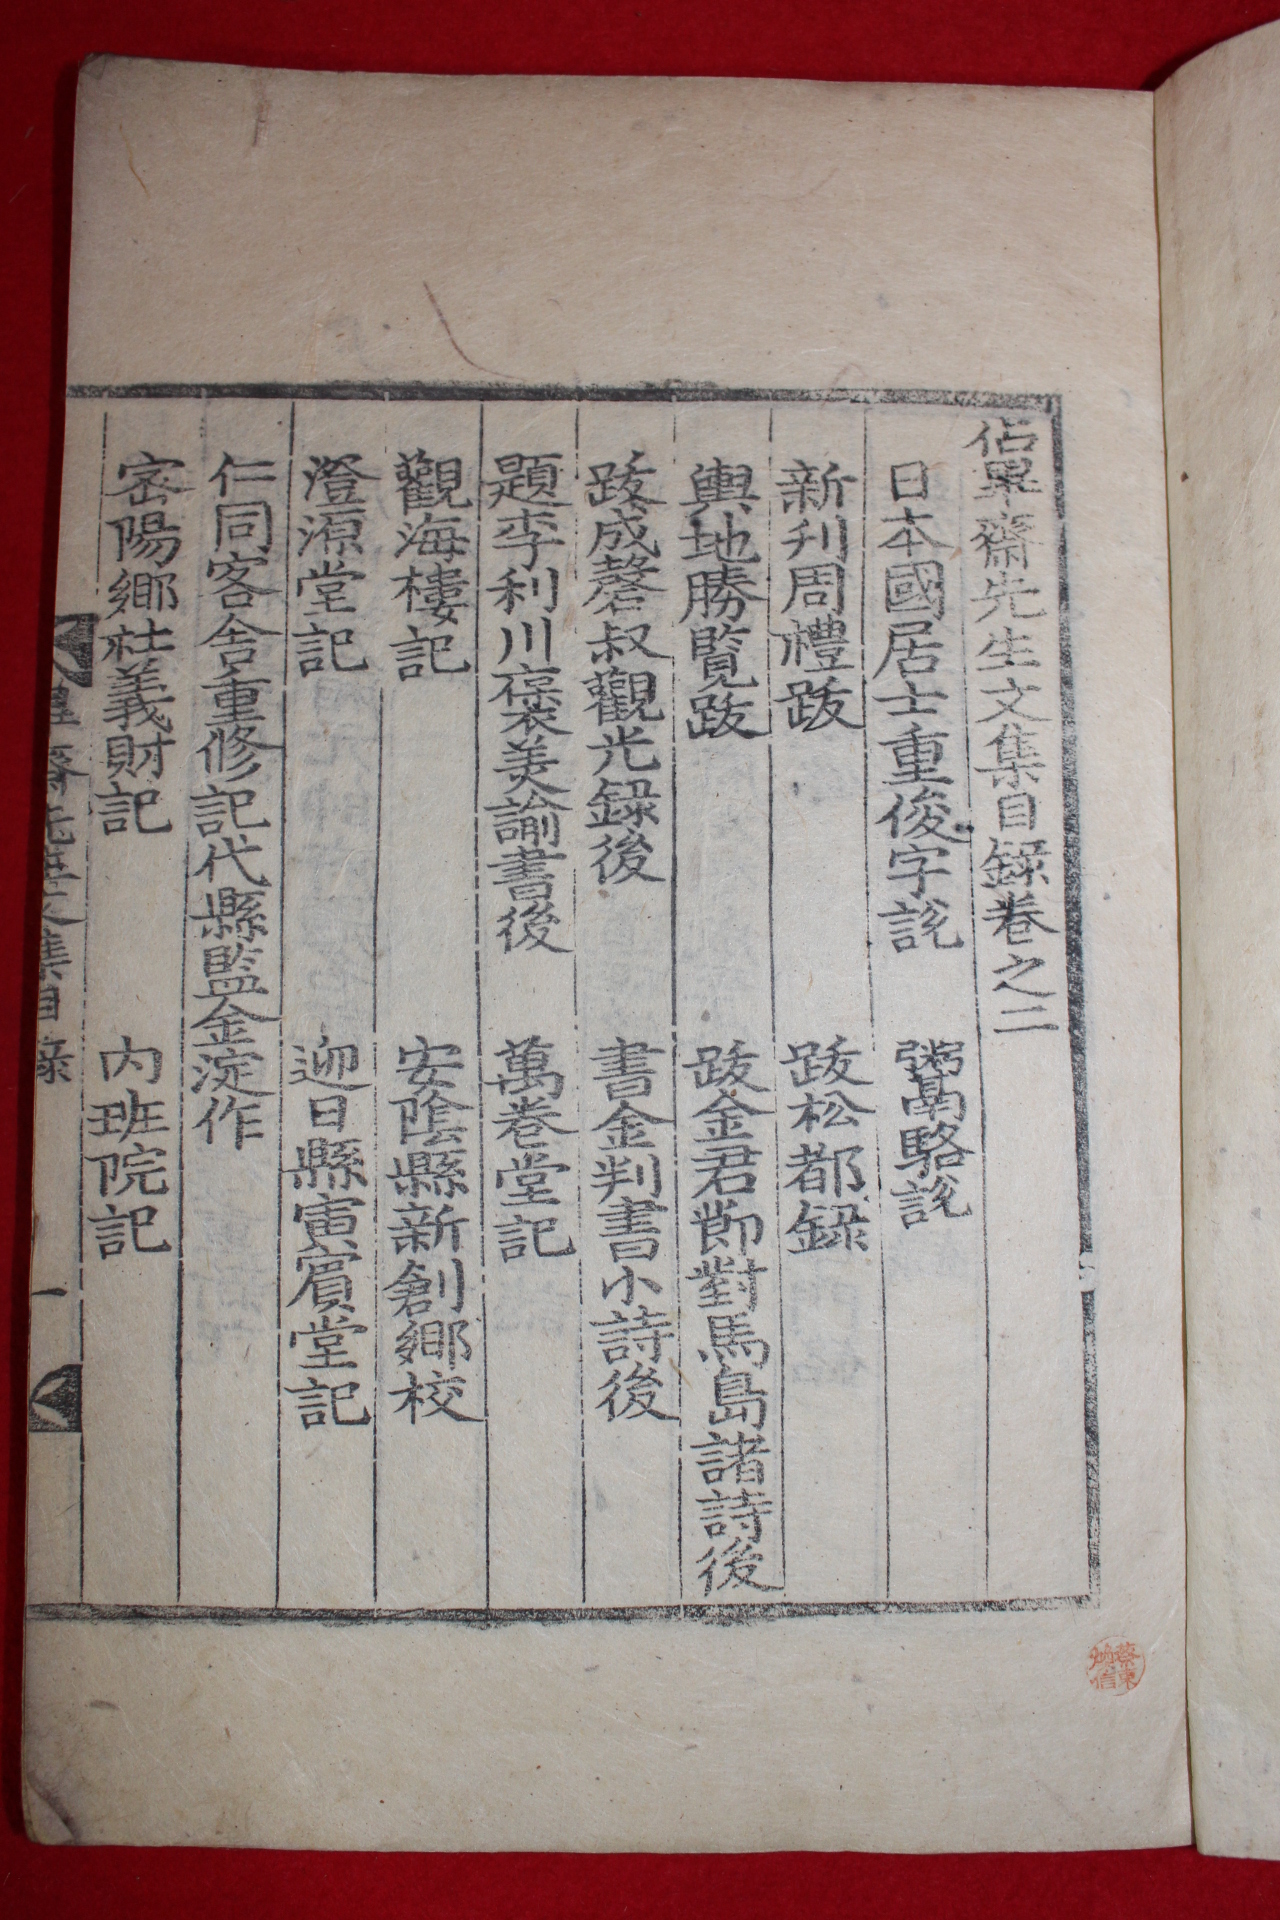 佔畢齋先生文集目録卷之二
日本國居士重俊字説　粥鬲駱説
新刋周禮跋　跋松都録
輿地勝覽跋　跋金君節對馬島諸詩後
跋成磬叔觀光録後　書金判書小詩後
題李利川褒美諭書後　萬卷堂記
觀海樓記　安陰縣新創鄉校
澄源堂記　迎日縣寅賓堂記
仁同客舍重修記代縣監金淀作
密陽鄉社義財記　内班院記
畢齋先生文集目錄　一